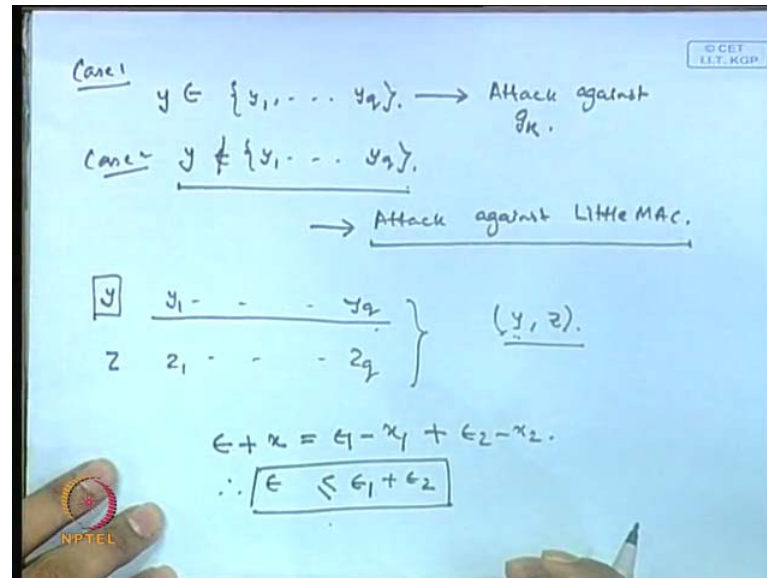 © CET
I.I.T. KGP
Case 1
y ∈ {y₁, - - - y_q}. ⟶ Attack against
g_K.
Case 2 y ∉ {y₁ - - - y_q}.
⟶ Attack against Little MAC.
y y₁ - - - y_q
z z₁ - - - z_q
(y, z).
ϵ + x = ϵ₁ - x₁ + ϵ₂ - x₂.
∴ ϵ ≤ ϵ₁ + ϵ₂
NPTEL